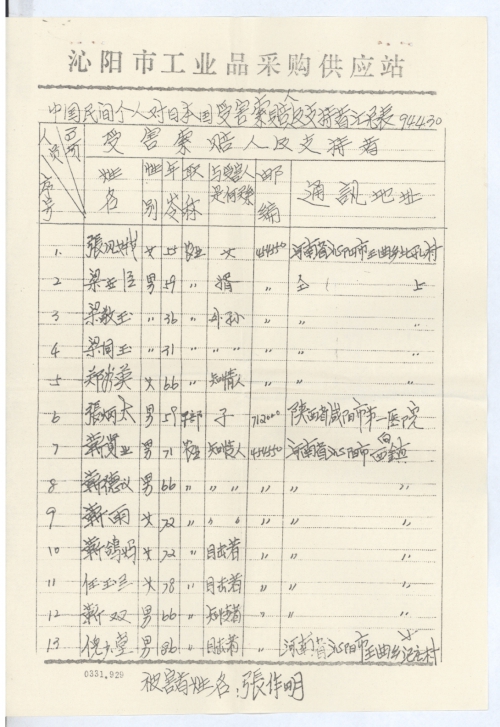 沁阳市工业品采购供应站
中国民间个人对日本国受害索赔及支持者记录表 94.4.30
人员 项 序号
受害索赔人及支持者
姓名 性别 年令 职称 与受害人是何关系 邮编 通訊地址
1. 張 女 55 农业 女 454550 河南省沁阳市王曲乡北孔村
2 梁 臣 男 59 〃 婿 〃 仝 上
3 梁敬玉 〃 36 〃 外孙 〃 〃 〃
4 梁同玉 〃 31 〃 〃 〃 〃 〃
5 郑 英 女 66 〃 知情人 〃 〃 〃
6 張 太 男 59 干部 子 712000 陕西省咸阳市第一医院
7 靳 业 男 71 农业 知情人 454550 河南省沁阳市
8 靳德 男 66 〃 〃 〃 〃 〃 〃
9 靳雨 女 72 〃 〃 〃 〃 〃 〃
10 靳鴿妈 女 72 〃 目击者 〃 〃 〃
11 任玉兰 女 78 〃 目击者 〃 〃 〃
12 靳双 男 66 〃 知情者 〃 〃 〃
13 倪大堂 男 86 〃 目击者 〃 河南省沁阳市王曲乡 村
0331.929
被害者姓名:張作明